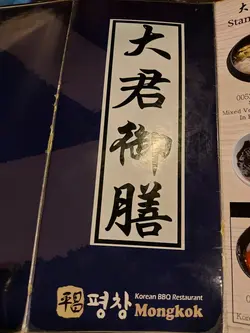 大君御膳
평창
Korean BBQ Restaurant
Mongkok
大
Stan
005
Mixed V
In